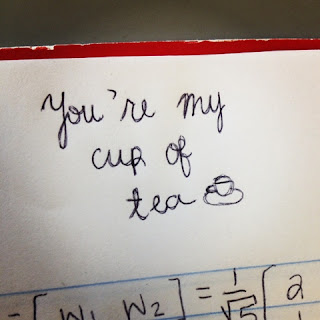 You're my
cup of
tea
= [W₁ W₂] = 1/√5 [2